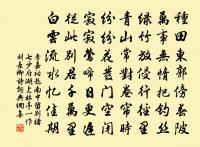 種田東郭傍春陂
萬事無情把釣絲
綠竹放侵行徑裏
青山常對卷簾時
紛紛花落門空閉
寂寂鶯啼日更遲
從此別君千萬里
白雲流水憶佳期
李嘉祐赴南中留別褚
七少府湖上林亭一作
劉長卿詩詞典網集